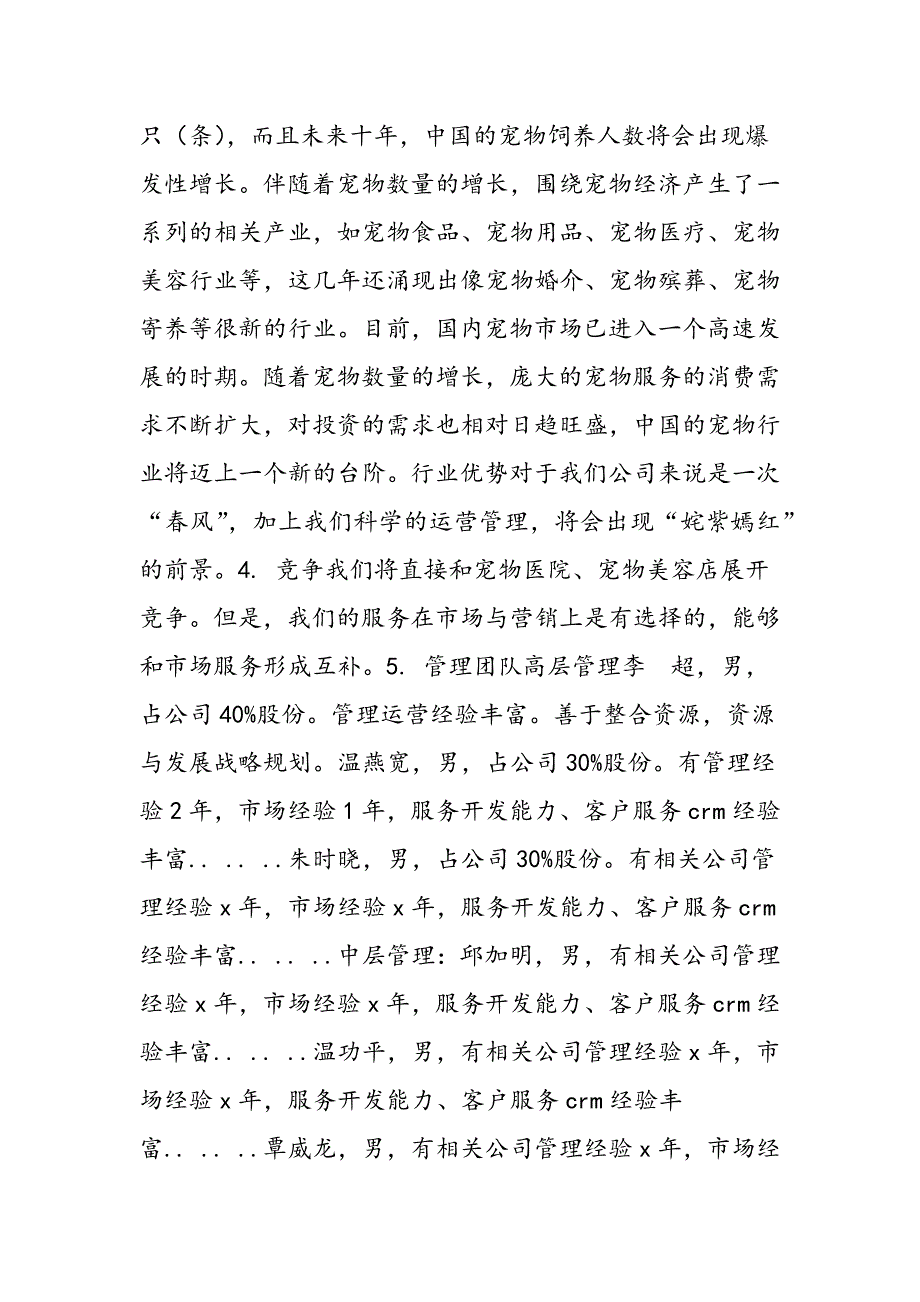 只（条），而且未来十年，中国的宠物饲养人数将会出现爆
发性增长。伴随着宠物数量的增长，围绕宠物经济产生了一
系列的相关产业，如宠物食品、宠物用品、宠物医疗、宠物
美容行业等，这几年还涌现出像宠物婚介、宠物殡葬、宠物
寄养等很新的行业。目前，国内宠物市场已进入一个高速发
展的时期。随着宠物数量的增长，庞大的宠物服务的消费需
求不断扩大，对投资的需求也相对日趋旺盛，中国的宠物行
业将迈上一个新的台阶。行业优势对于我们公司来说是一次
“春风”，加上我们科学的运营管理，将会出现“姹紫嫣红”
的前景。4. 竞争我们将直接和宠物医院、宠物美容店展开
竞争。但是，我们的服务在市场与营销上是有选择的，能够
和市场服务形成互补。5. 管理团队高层管理李　超，男，
占公司40%股份。管理运营经验丰富。善于整合资源，资源
与发展战略规划。温燕宽，男，占公司30%股份。有管理经
验2年，市场经验1年，服务开发能力、客户服务crm经验
丰富......朱时晓，男，占公司30%股份。有相关公司管
理经验x年，市场经验x年，服务开发能力、客户服务crm
经验丰富......中层管理：邱加明，男，有相关公司管理
经验x年，市场经验x年，服务开发能力、客户服务crm经
验丰富......温功平，男，有相关公司管理经验x年，市
场经验x年，服务开发能力、客户服务crm经验丰
富......覃威龙，男，有相关公司管理经验x年，市场经